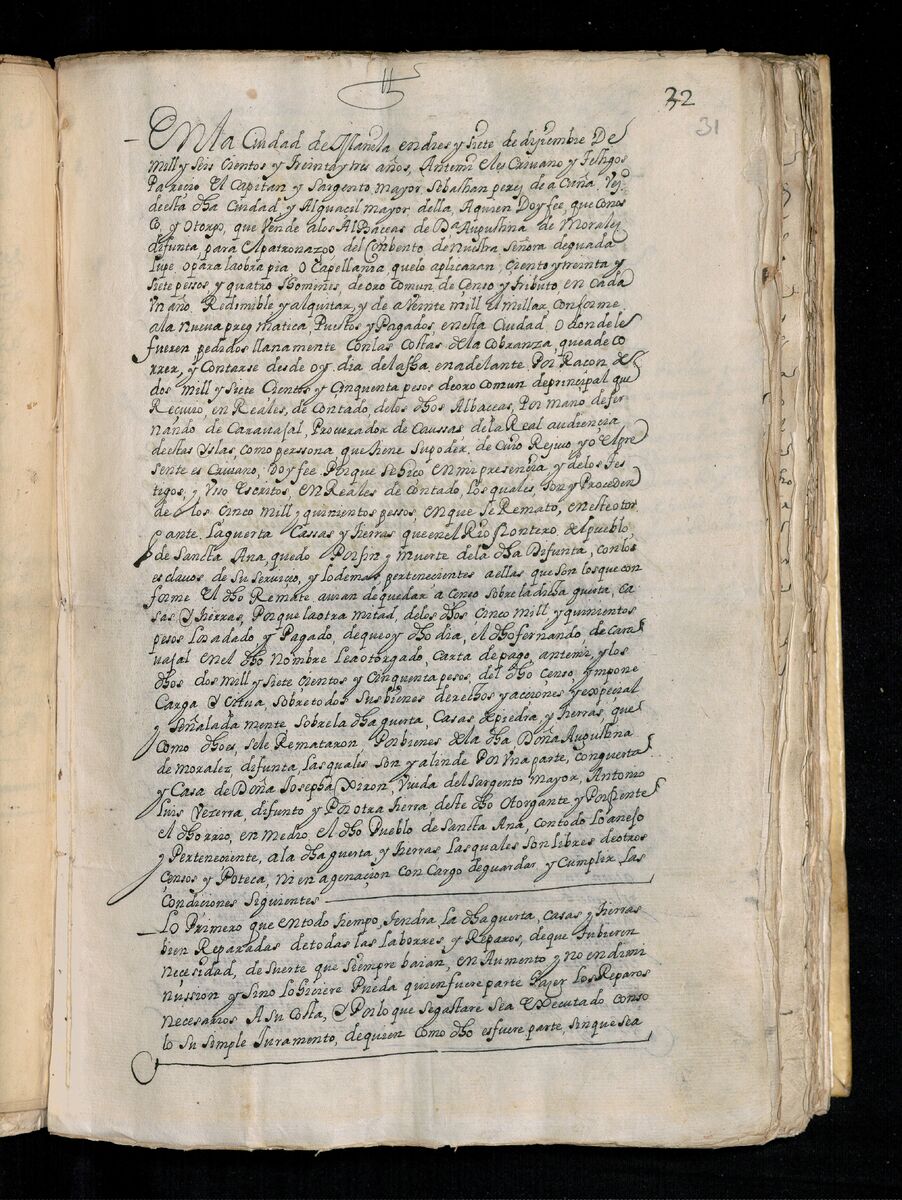 32
31
En la Ciudad de Manila en dies y Siete de diziembre De
Mill y Seis Cientos y treinta y tres años, Antemi el es Crivano y testigos
Pareçio El Capitan y Sargento mayor Sebastian perez de a Cuña, Vezº
de esta dha Ciudad y Alguacil mayor della, A quien Doy fee, que conos
co, y Otorgo, que Vende a los Albaceas de Dª Augustina de Morales
difunta para el patronazgo del Conbento de nuestra Señora de guada
lupe o para la obra pia o Capellania que lo aplicaran, Ciento y treinta y
Siete pessos y quatro thomines, de oro Comun de Çenso y tributo en Cada
Un año Redimible y al quitar, y de a Veinte mill el Millar, Conforme
a la nueva pregmatica, Puestos y Pagados, en esta Ciudad, O donde le
fueren pedidos llanamente Con las Costas de la Cobranza, que a de Co
rrer, y Contarse desde oy dia de la fha en adelante Por Racon de
dos Mill y Siete Cientos y Cinquenta pesos de oro Comun de principal que
Reçivio, en Reales, de Contado, de los dhos Albaceas, Por mano de fer
nando de Caravajal, Procurador de Caussas de la Real audiençia
de estas Yslas, Como perssona que tiene Su poder, de Cuio Reçivo yo el pre
sente es Crivano, Doy fee Porque Se hiço en mi presençia, y de los tes
tigos, y Uso Escritos, en Reales de Contado, Los quales, Son y Proceden
de los Cinco Mill y quinientos pessos, en que Se Remato, en este otor
gante, La guerta Cassas y tierras que en el Rio frontero, del pueblo
de Sancta Ana, quedo Por fin y muerte de la dha Difunta, con los
esclavos de Su Serviçio, y lo demas perteneçientes a ellas que Son los que con
forme El dho Remate avian de quedar a Censo Sobre la dicha guerta, ca
sas y tierras, Porque la otra mitad, de los dhos Cinco mill y quinientos
pesos Los a dado y Pagado, de que oy dho dia, el dho fernando de Cara
vajal en el dho nombre Le a otorgado, Carta de pago, antemi, y los
dhos dos Mill y Siete Çientos y Cinquenta pesos, del dho Censo, ympone
Carga y Citua, Sobre todos Sus bienes derechos y acciones y espeçial
y Señalada mente Sobre la dha guerta, Casas de piedra, y tierras, que
Como dho es, Se le Remataron Por bienes de la dha Doña Augustina
de Morales, difunta, Las quales Son y alinde Por Una parte, con guerta
y Casa de Doña Josepha Xiron, Viuda del Sargento mayor, Antonio
Luis Vezerra, difunto y Por otra tierra deste dho Otorgante, y Por frente
el dho rrio, en medio, el dho Pueblo de Sancta Ana, con todo Lo anejo
y Perteneçiente, a la dha guerta, y tierras Las quales Son libres de otros
Çensos y Poteca, ni en agenaçion con Cargo de guardar y Cumplir Las
Condiciones Siguientes
Lo Primero que en todo tiempo, tendra, La dha guerta, casas y tierras
bien Reparadas de todas las Laborres, y Reparos, de que tubieren
neçeçidad, de Suerte que Siempre baian, en Aumento y no en dimi
nussion y Si no lo hiciere Pueda quien fuere parte hazer Los Reparos
necesarios A su Costa, y Por lo que Se gastare Sea Executado, con so
lo Su Simple Juramento, de quien como dho es fuere parte, Sin que Sea